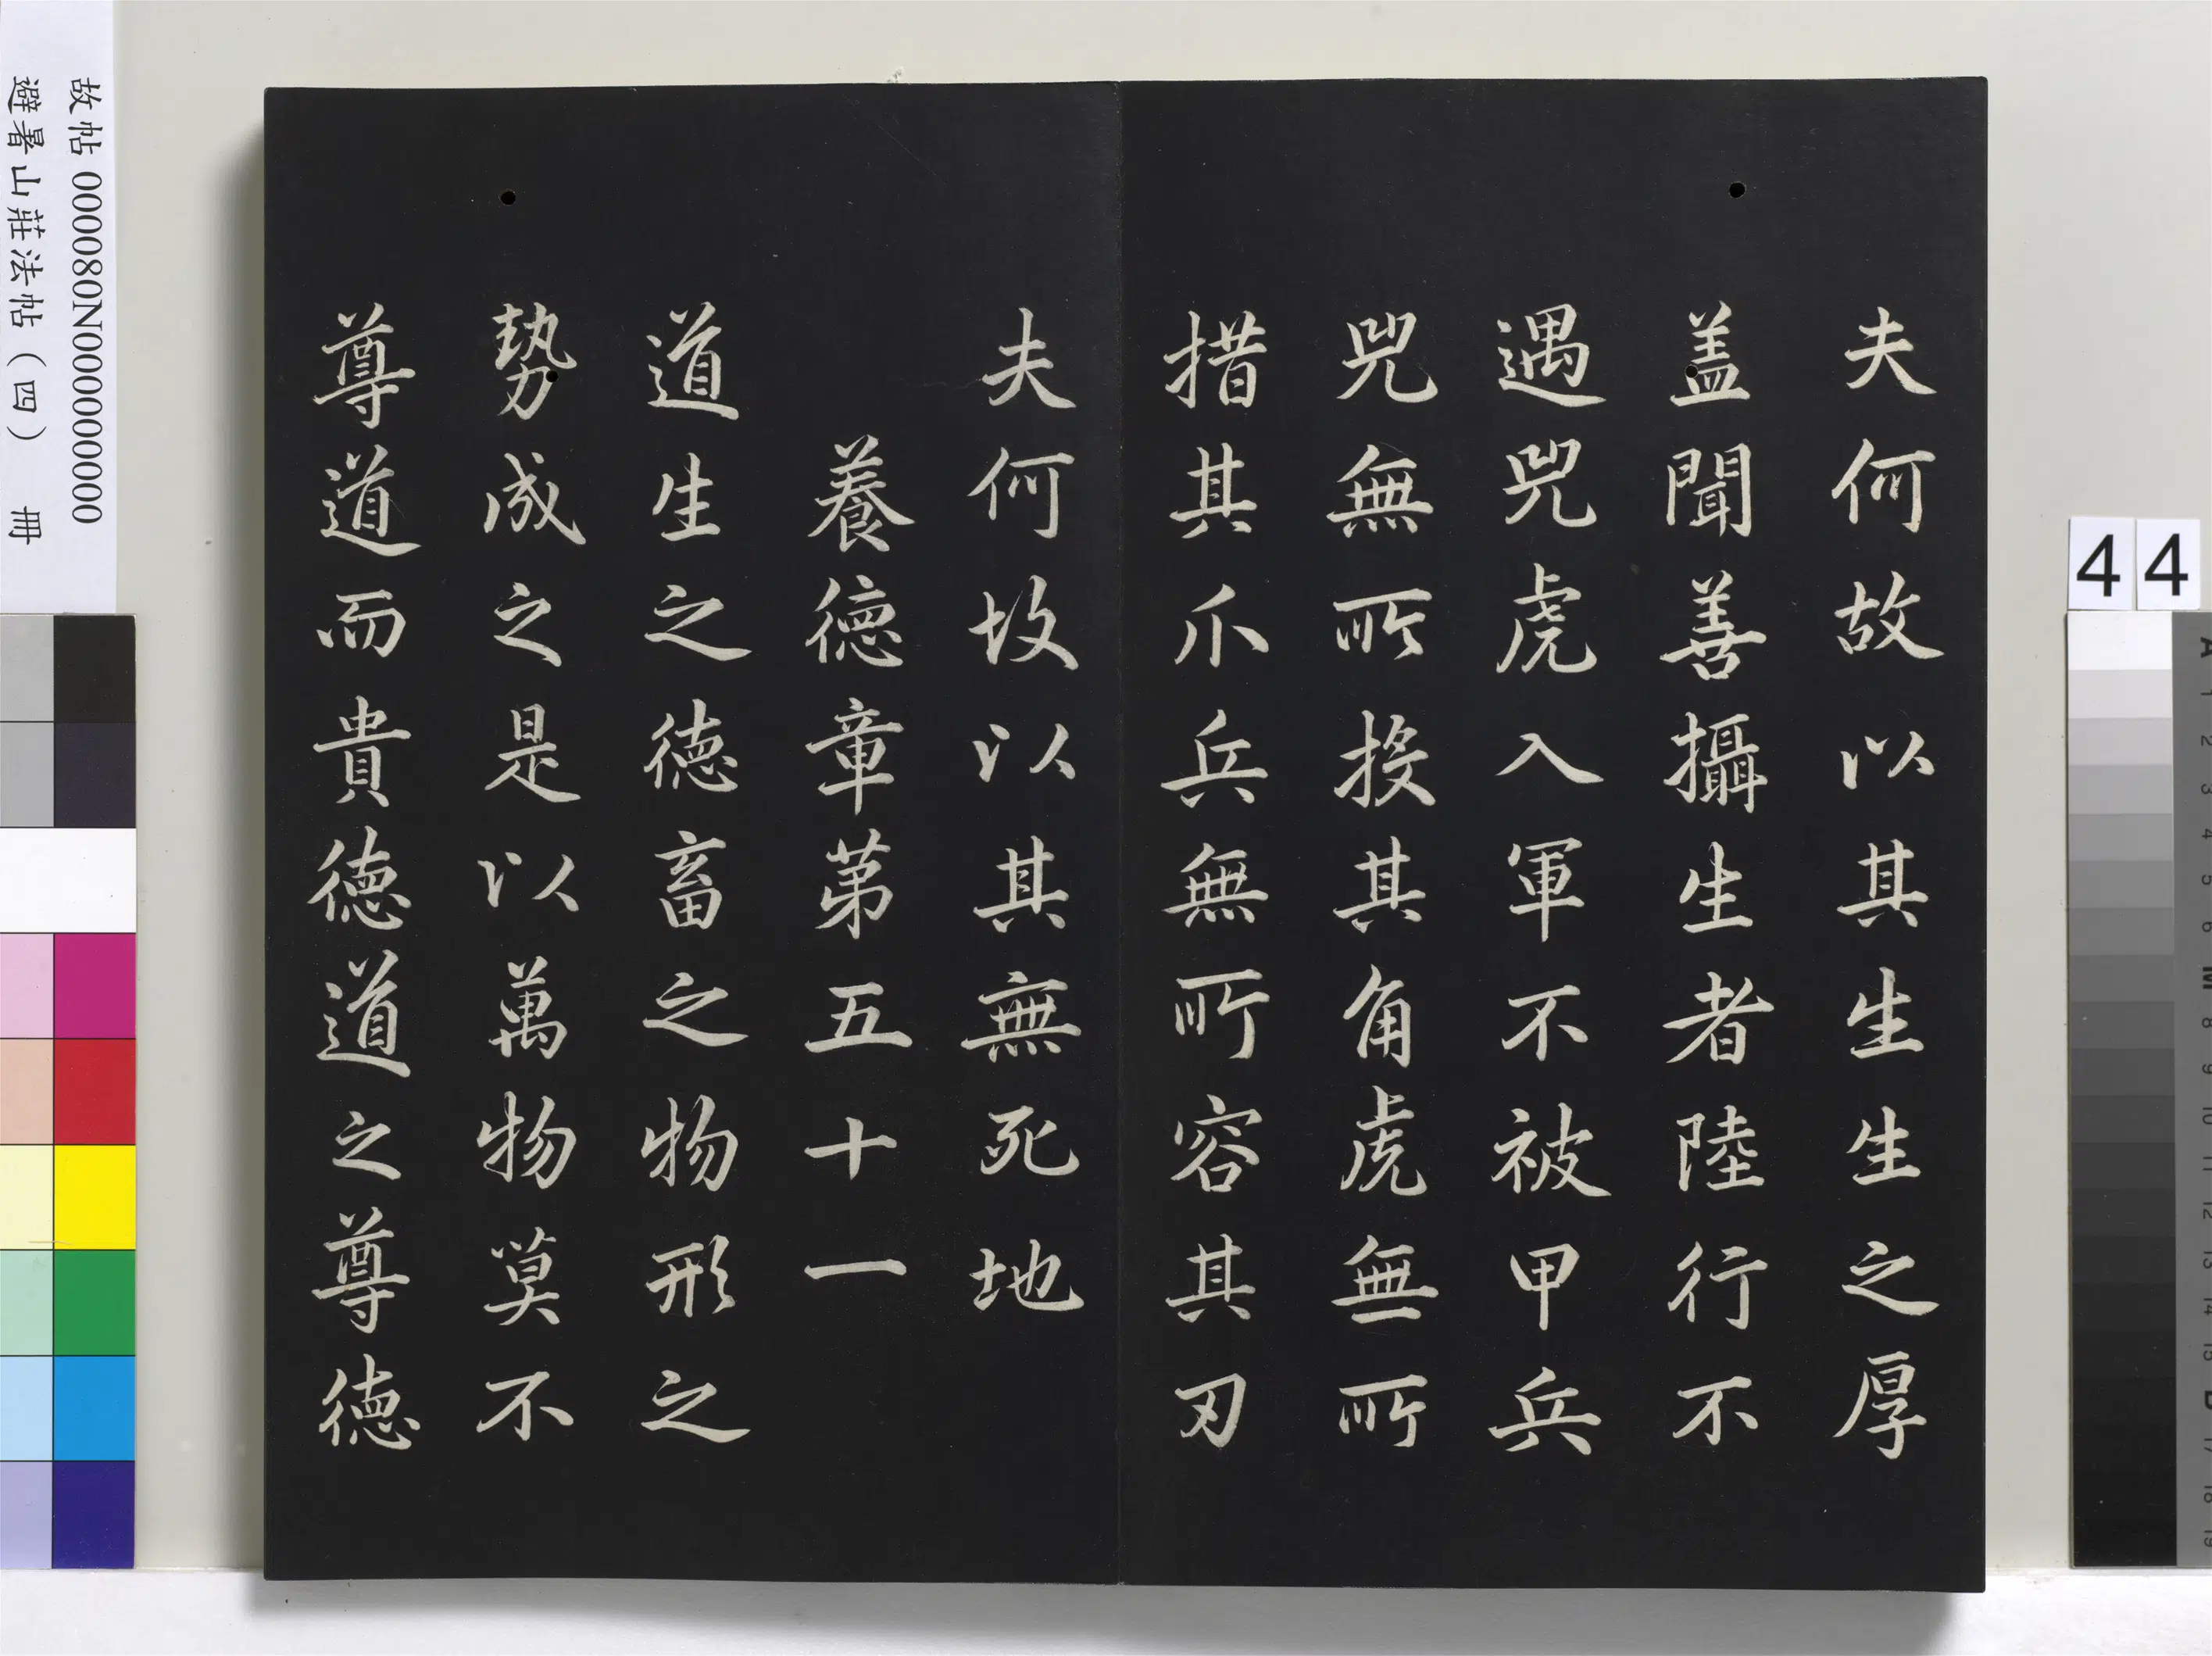 夫何故以其生生之厚
盖聞善攝生者陸行不
遇兕虎入軍不被甲兵
兕無所投其角虎無所
措其爪兵無所容其刃
夫何故以其無死地
養德章第五十一
道生之德畜之物形之
勢成之是以萬物莫不
尊道而貴德道之尊德
故帖 000080N000000000
避暑山莊法帖（四） 冊
44
A 1 2 3 4 5 6 M 8 9 10 11 12 13 14 15 B 17 18 19